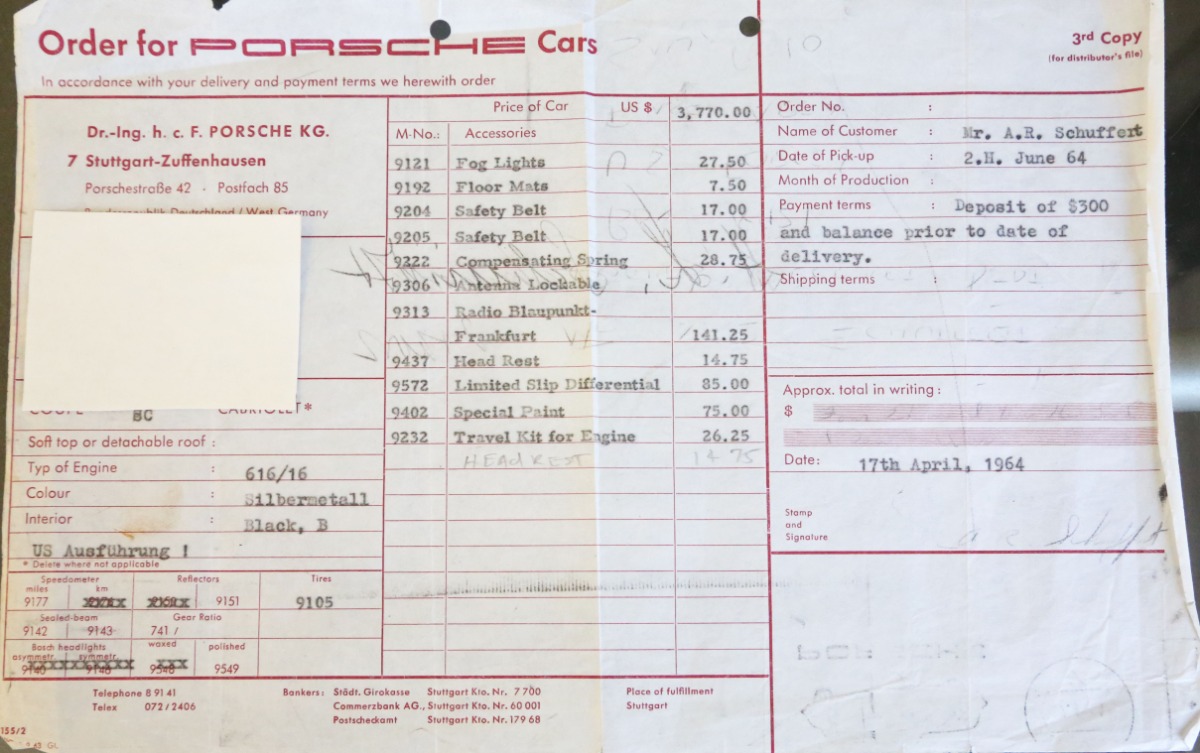 Order for PORSCHE Cars
3rd Copy
(for distributor's file)
In accordance with your delivery and payment terms we herewith order
Dr.-Ing. h. c. F. PORSCHE KG.
7 Stuttgart-Zuffenhausen
Porschestraße 42 · Postfach 85
Bundesrepublik Deutschland / West Germany
COUPE CABRIOLET*
BC
Soft top or detachable roof :
Typ of Engine : 616/16
Colour : Silbermetall
Interior : Black, B
US Ausführung !
* Delete where not applicable
Speedometer Reflectors Tires
miles km
9177 9151 9105
Sealed-beam Gear Ratio
9142 9143 741 /
Bosch headlights waxed polished
asymmetr. symmetr.
9140 9148 9548 9549
Price of Car US $ 3,770.00
M-No.: Accessories
9121 Fog Lights 27.50
9192 Floor Mats 7.50
9204 Safety Belt 17.00
9205 Safety Belt 17.00
9322 Compensating Spring 28.75
9306 Antenna Lockable
9313 Radio Blaupunkt-
Frankfurt 141.25
9437 Head Rest 14.75
9572 Limited Slip Differential 85.00
9402 Special Paint 75.00
9232 Travel Kit for Engine 26.25
HEAD REST 14 75
Order No. :
Name of Customer : Mr. A.R. Schuffert
Date of Pick-up : 2.H. June 64
Month of Production :
Payment terms : Deposit of $300
and balance prior to date of
delivery.
Shipping terms :
Approx. total in writing :
$
Date: 17th April, 1964
Stamp
and
Signature
Telephone 8 91 41
Telex 072 / 2406
Bankers: Städt. Girokasse Stuttgart Kto. Nr. 7 700
Commerzbank AG., Stuttgart Kto. Nr. 60 001
Postscheckamt Stuttgart Kto. Nr. 179 68
Place of fulfillment
Stuttgart
155/2